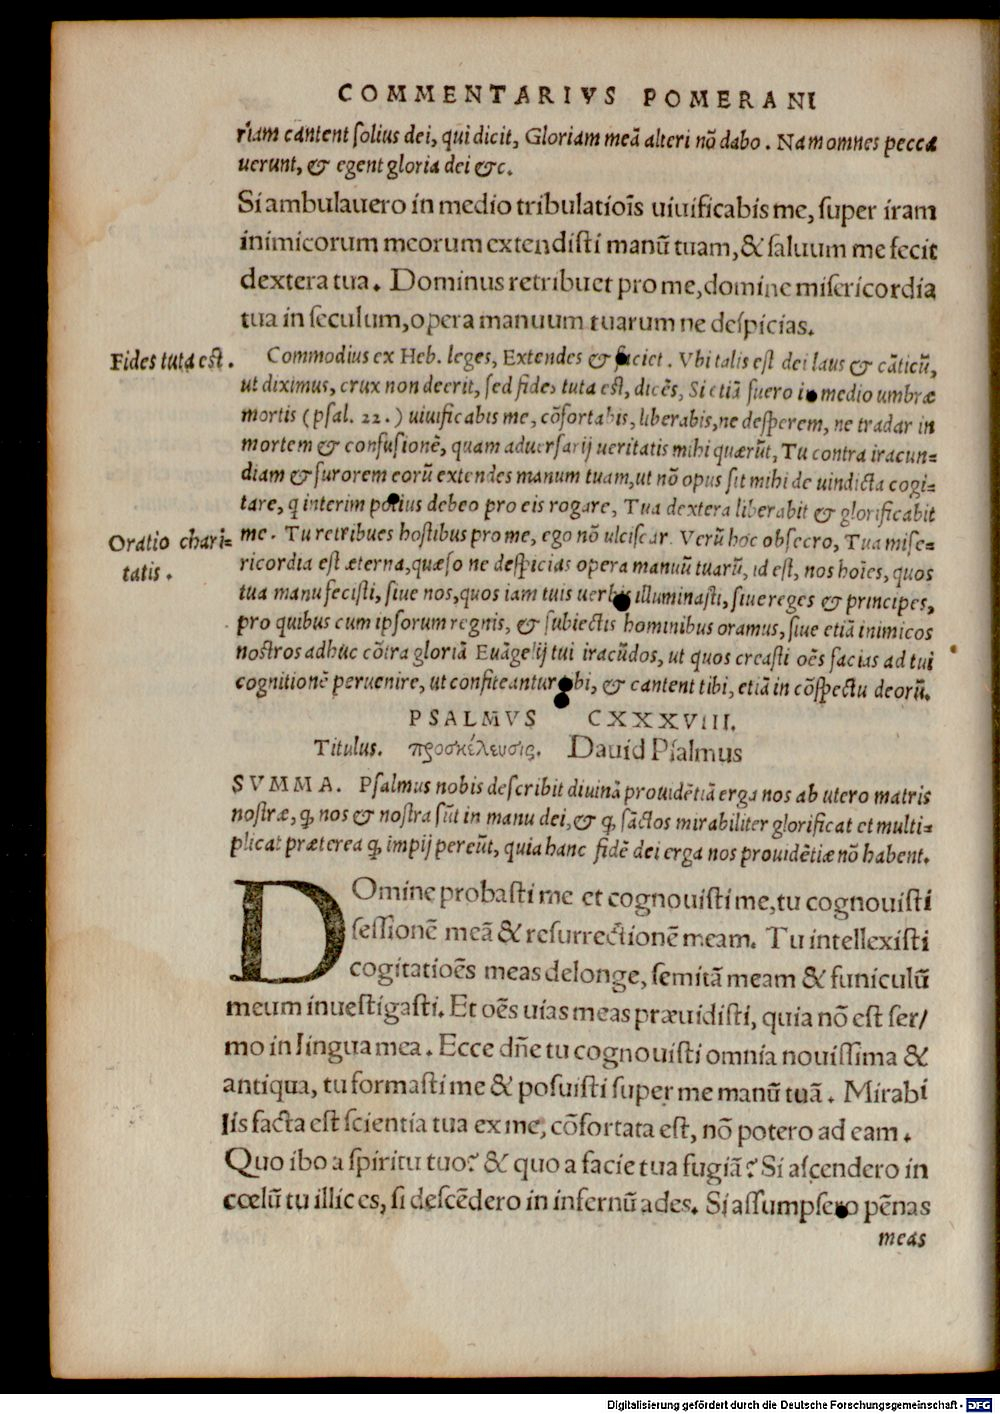 COMMENTARIVS POMERANI
riam cantent solius dei, qui dicit, Gloriam meā alteri nō dabo. Nam omnes pecca
uerunt, & egent gloria dei &c.
Si ambulauero in medio tribulatiōis uiuificabis me, super iram
inimicorum meorum extendisti manū tuam, & saluum me fecit
dextera tua. Dominus retribuet pro me, domine misericordia
tua in seculum, opera manuum tuarum ne despicias.
Fides tuta est.
Commodius ex Heb. leges, Extendes & faciet. Vbi talis est dei laus & cāticū,
ut diximus, crux non deerit, sed fides tuta est, dicēs, Si etiā fuero in medio umbræ
mortis (psal. 22.) uiuificabis me, cōfortabis, liberabis, ne desperem, ne tradar in
mortem & confusionē, quam aduersarij ueritatis mihi quærūt, Tu contra iracun=
diam & furorem eorū extendes manum tuam, ut nō opus sit mihi de uindicta cogi=
tare, q interim potius debeo pro eis rogare, Tua dextera liberabit & glorificabit
Oratio chari=
tatis.
me. Tu retribues hostibus pro me, ego nō ulciscar. Verū hoc obsecro, Tua mise=
ricordia est æterna, quæso ne despicias opera manuū tuarū, id est, nos hoīes, quos
tua manu fecisti, siue nos, quos iam tuis uerbis illuminasti, siue reges & principes,
pro quibus cum ipsorum regnis, & subiectis hominibus oramus, siue etiā inimicos
nostros adhuc cōtra gloriā Euāgelij tui iracūdos, ut quos creasti oēs facias ad tui
cognitionē peruenire, ut confiteantur tibi, & cantent tibi, etiā in cōspectu deorū.
PSALMVS CXXXVIII.
Titulus. προσκέλευσις. Dauid Psalmus
SVMMA. Psalmus nobis describit diuinā prouidētiā erga nos ab utero matris
nostræ, q̨ nos & nostra sūt in manu dei, & q̨ sāctos mirabiliter glorificat et multi=
plicat præterea q̨ impij pereūt, quia hanc fidē dei erga nos prouidētiæ nō habent.
DOmine probasti me et cognouisti me, tu cognouisti
sessionē meā & resurrectionē meam. Tu intellexisti
cogitatioēs meas de longe, semitā meam & funiculū
meum inuestigasti. Et oēs uias meas præuidisti, quia nō est ser/
mo in lingua mea. Ecce dn̄e tu cognouisti omnia nouissima &
antiqua, tu formasti me & posuisti super me manū tuā. Mirabi
lis facta est scientia tua ex me, cōfortata est, nō potero ad eam.
Quo ibo a spiritu tuo? & quo a facie tua fugiā? Si ascendero in
cœlū tu illic es, si descēdero in infernū ades. Si assumpsero pēnas
meas
Digitalisierung gefördert durch die Deutsche Forschungsgemeinschaft - DFG